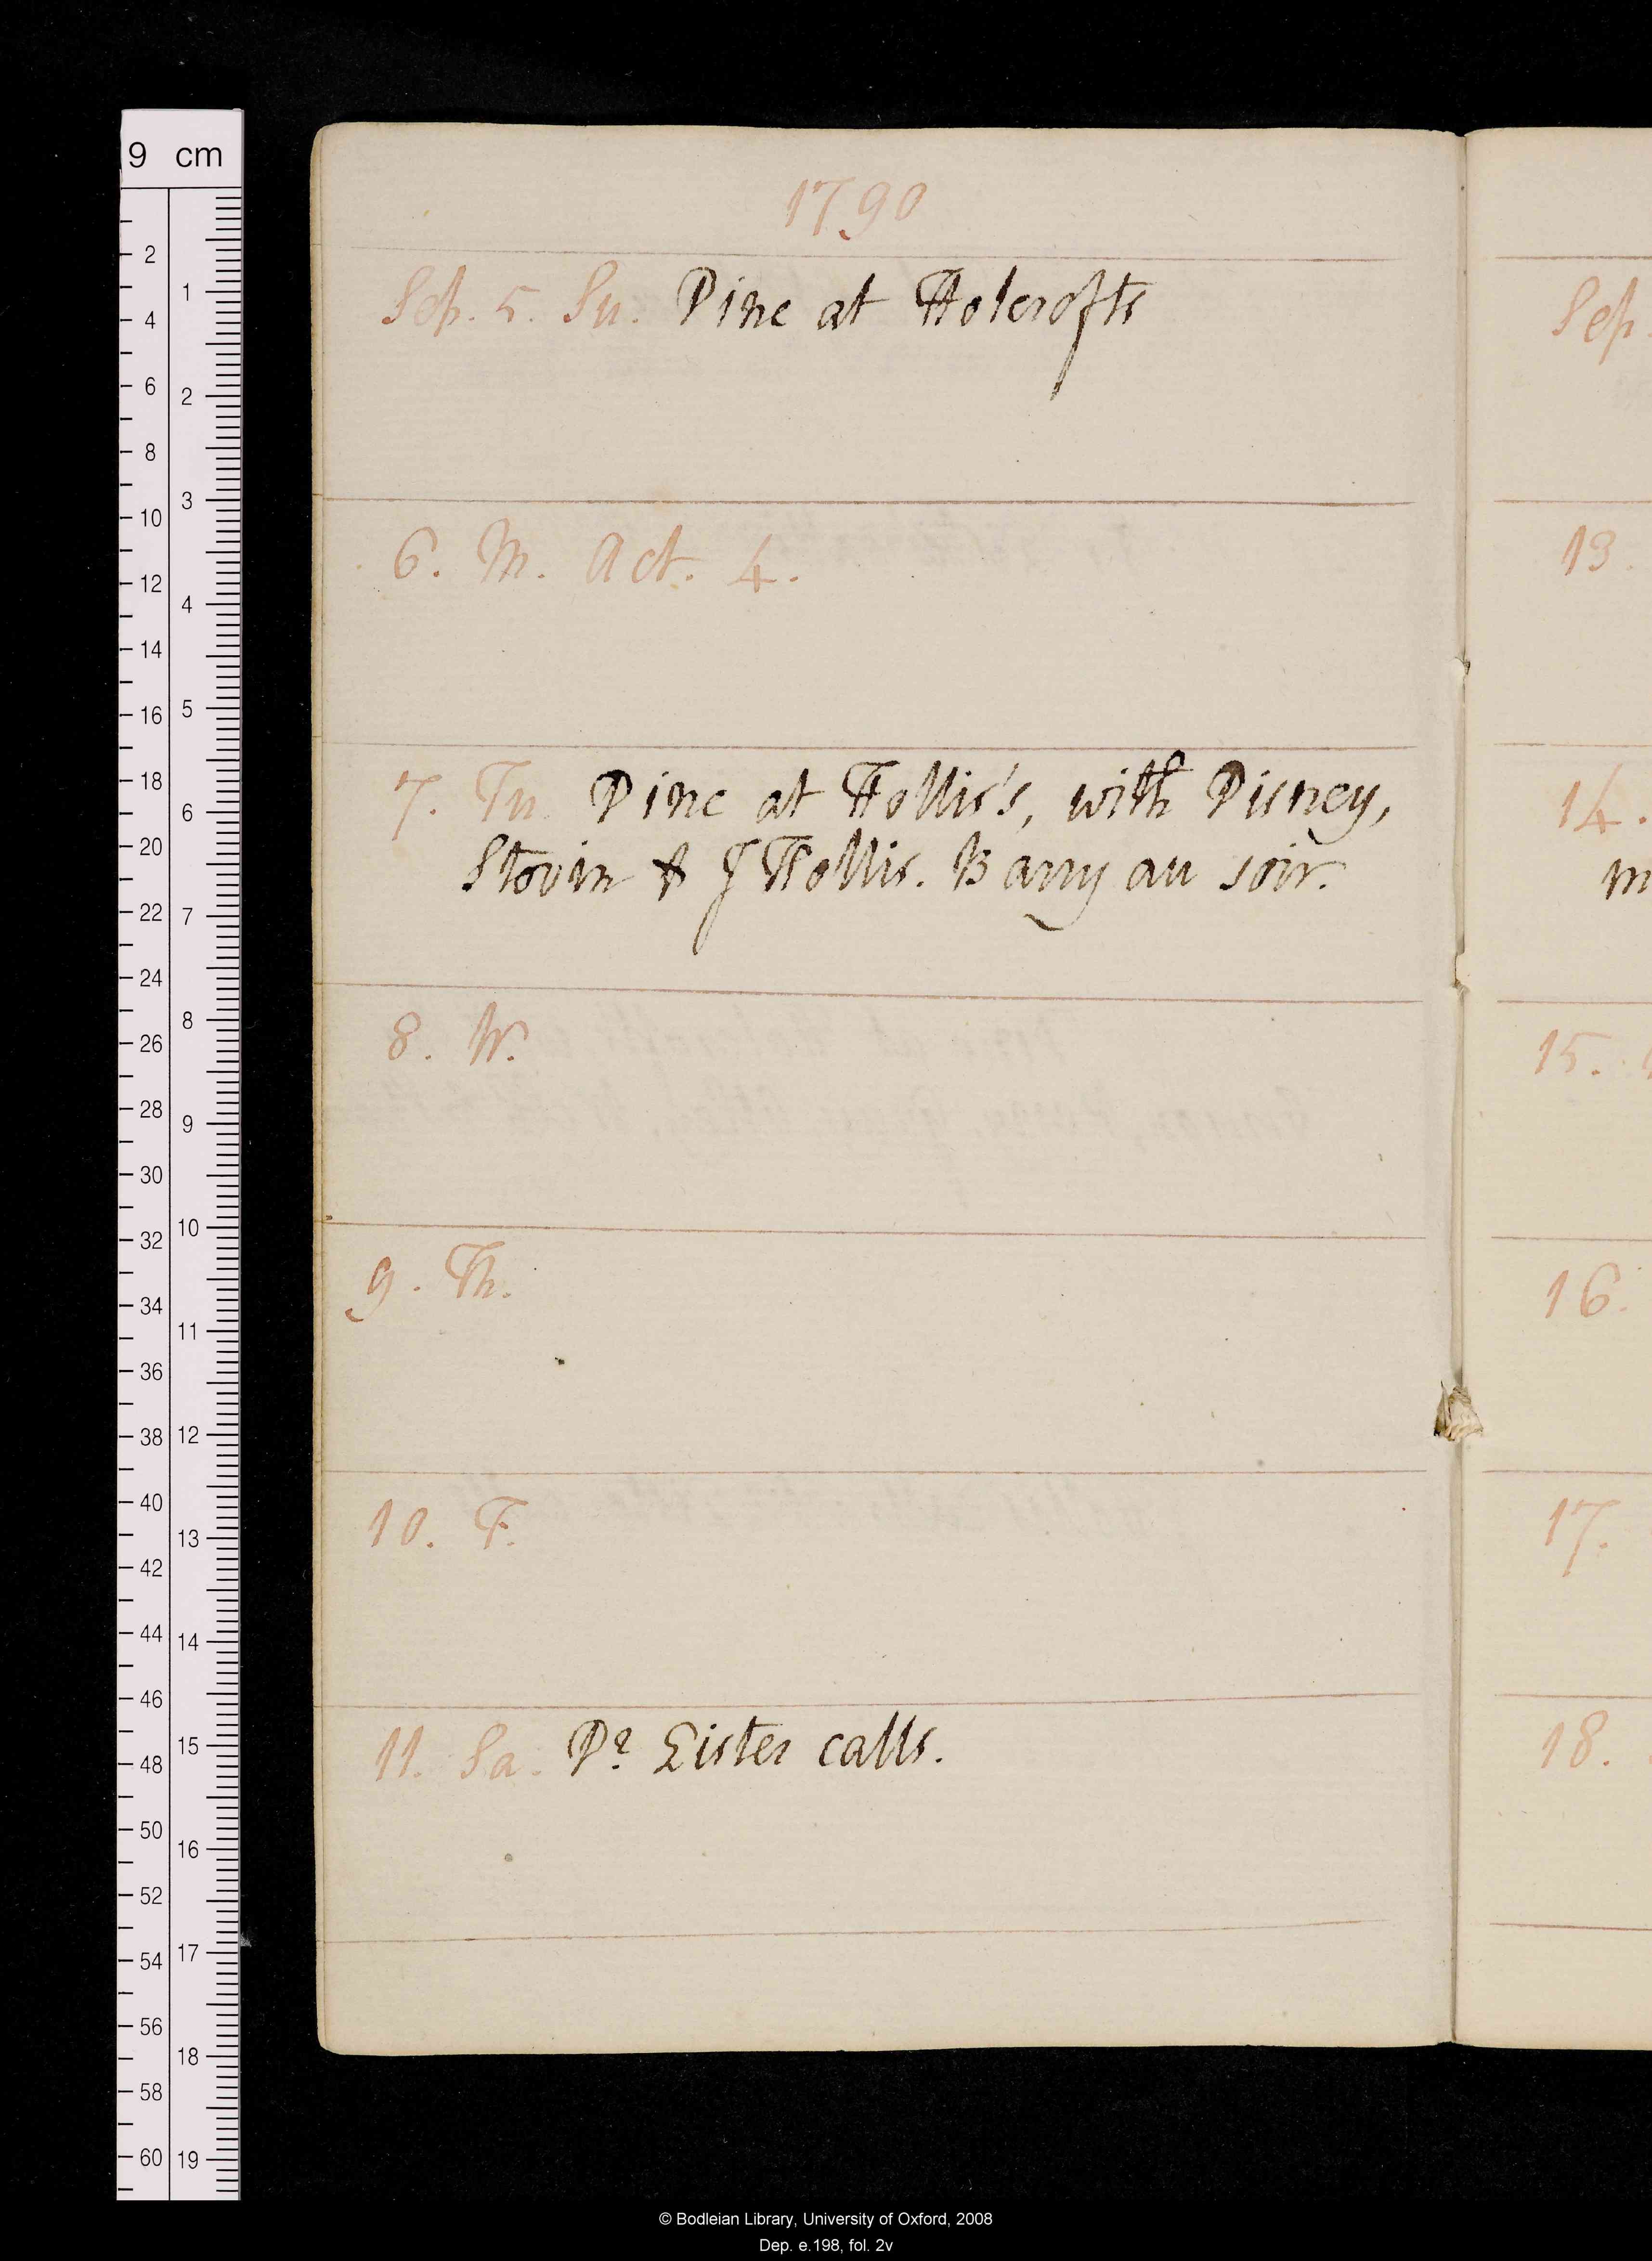 1790
Sep. 5. Su. Dine at Holcrofts
6. M. Act. 4.
7. Tu. Dine at Hollis's, with Disney,
Stovin & J Hollis. Barry au soir.
8. W.
9. Th.
10. F.
11. Sa. Dr Lister calls.
Sep.
13.
14.
m
15.
16.
17.
18.
9 cm
2
4
6
8
10
12
14
16
18
20
22
24
26
28
30
32
34
36
38
40
42
44
46
48
50
52
54
56
58
60
1
2
3
4
5
6
7
8
9
10
11
12
13
14
15
16
17
18
19
© Bodleian Library, University of Oxford, 2008
Dep. e.198, fol. 2v